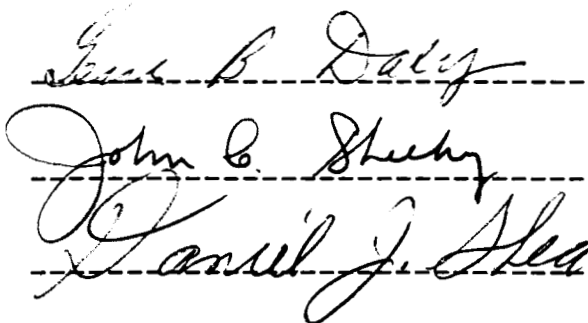 Gene B Daly
John C. Sheehy
Daniel J. Shea